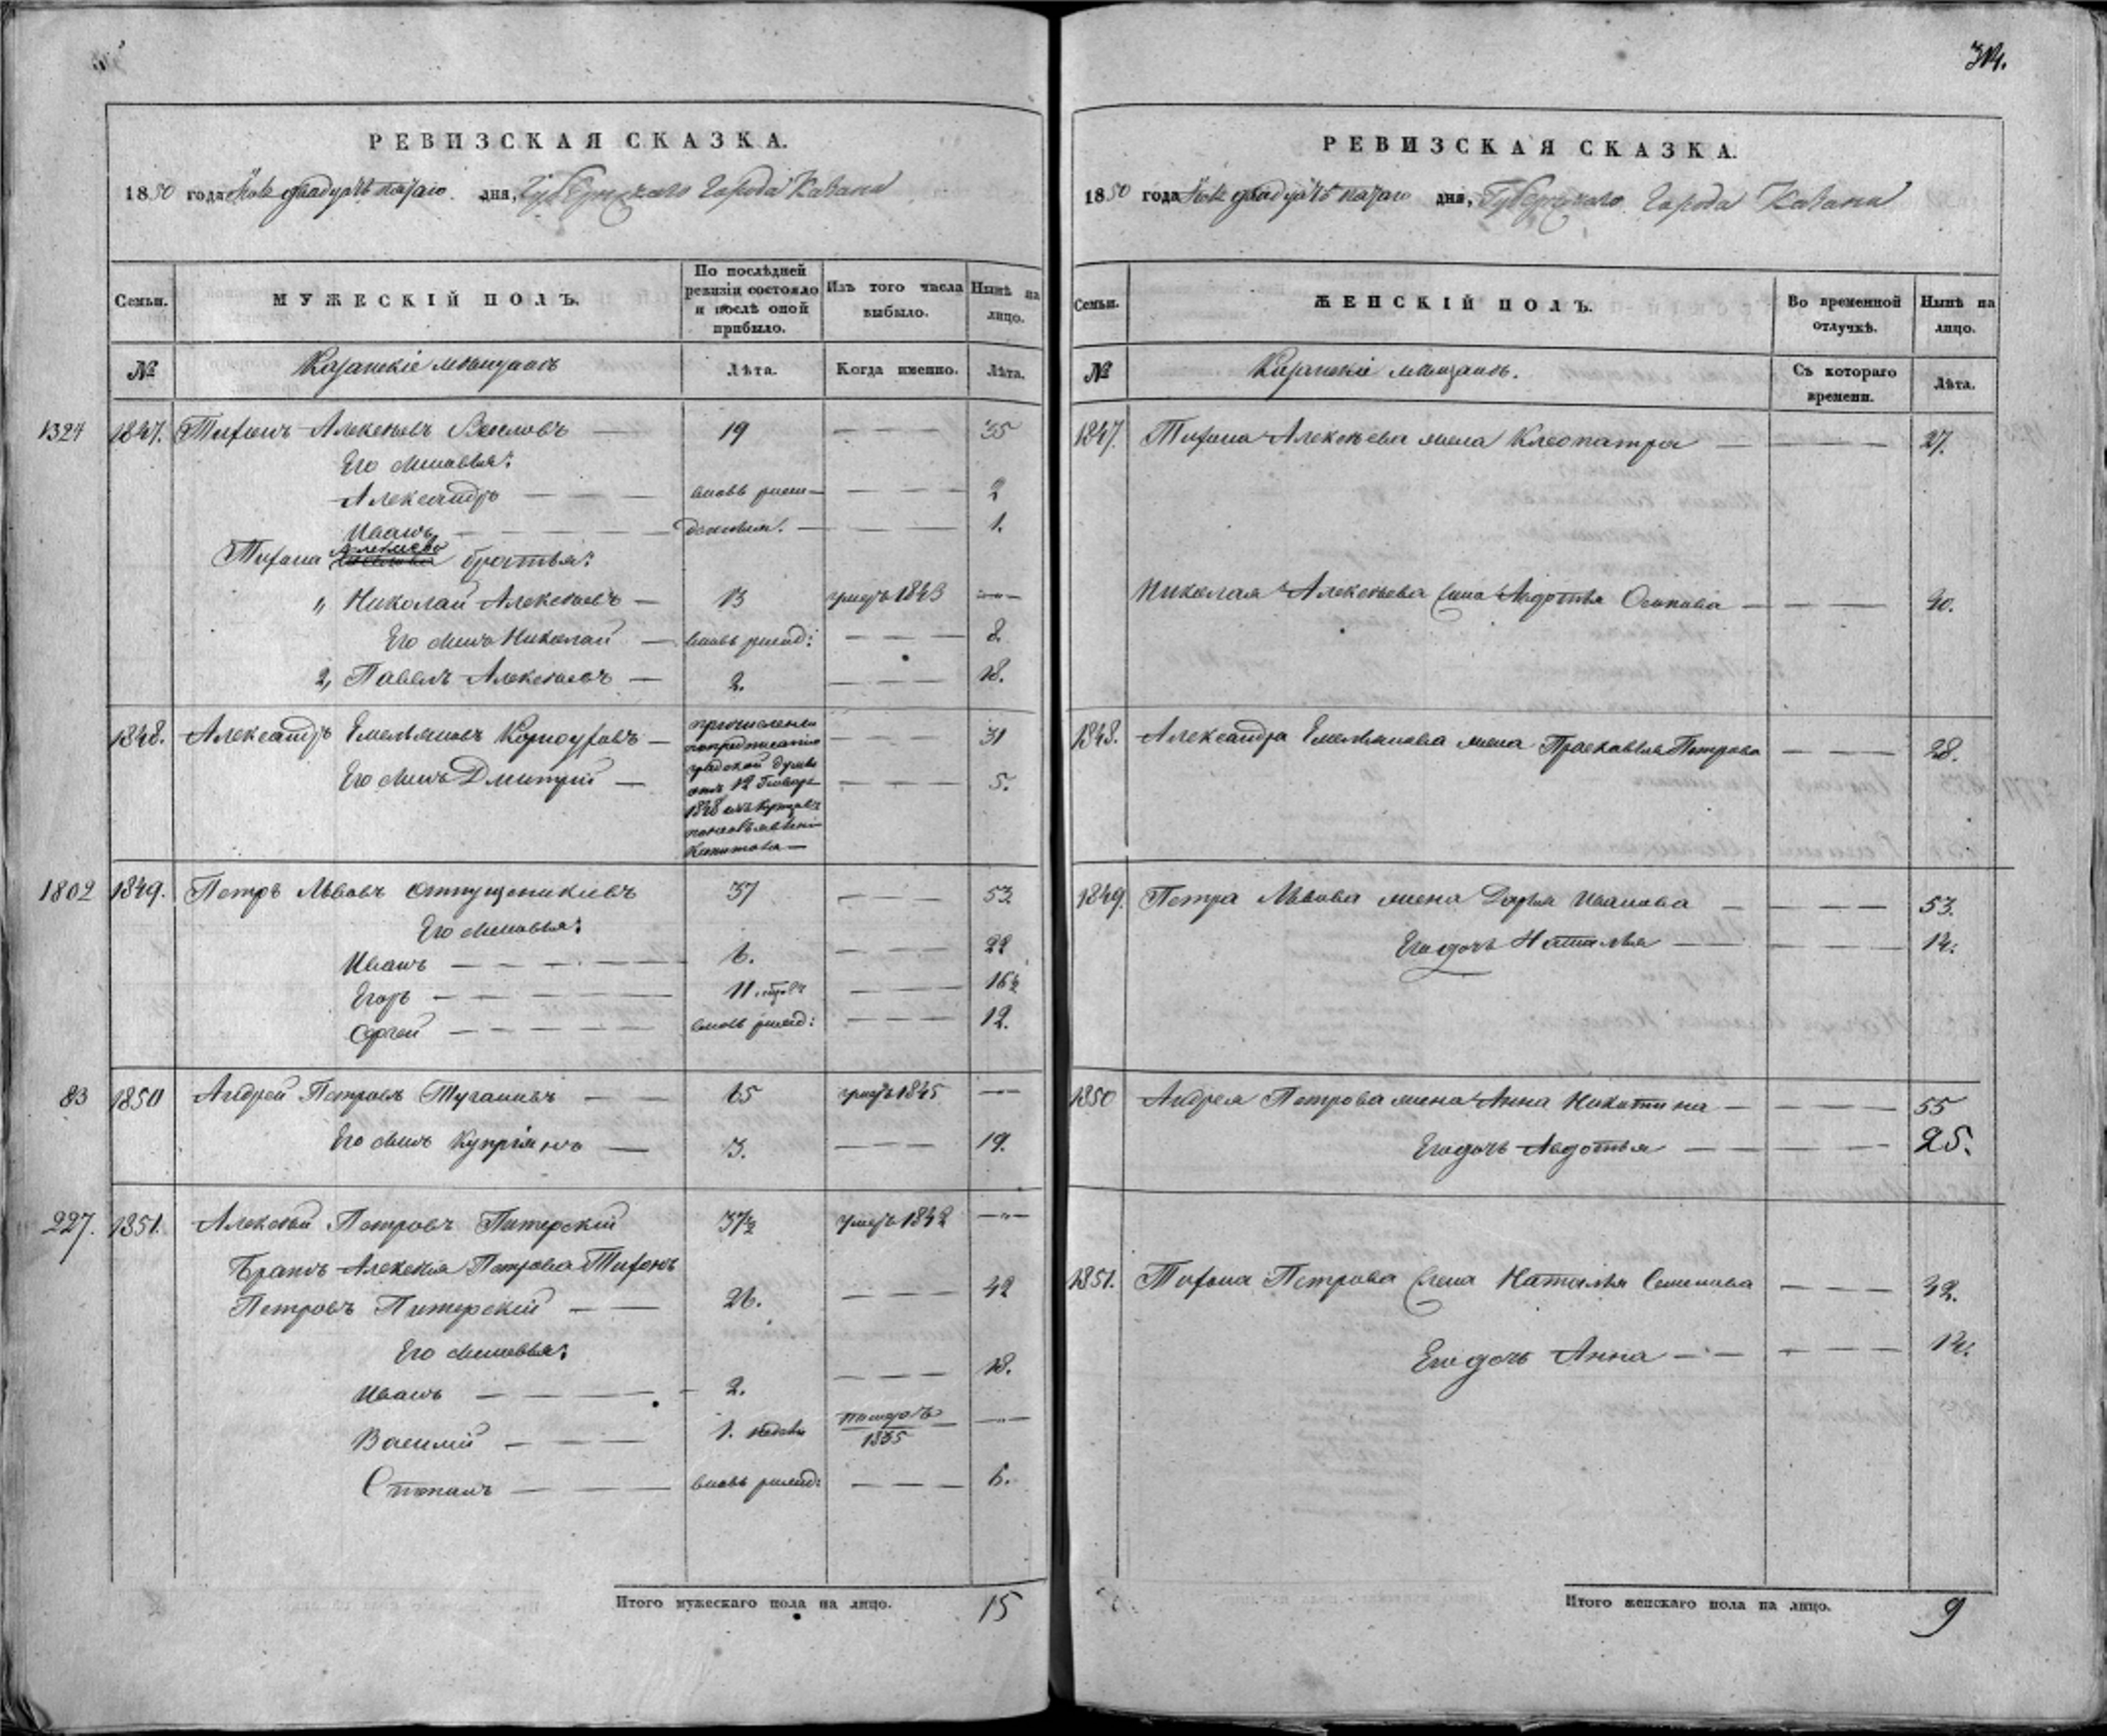 314.
РЕВИЗСКАЯ СКАЗКА.
1850 года дня, Губернскаго Города Казани
Семьи. МУЖЕСКІЙ ПОЛЪ. По послѣдней ревизіи состояло и послѣ оной прибыло. Изъ того числа выбыло. Нынѣ на лицо.
№ Казанскіе мѣщане Лѣта. Когда именно. Лѣта.
1324 1847. Тифонъ Алексѣевъ 19 — — — 35
Его сыновья:
Александръ — — — вновь рож — — — — 2
Иванъ — — — — — — — 1.
Тифона Алексѣева братья:
1, Николай Алексѣевъ — 13 умеръ 1843 —
Его сынъ Николай — вновь рожд: — — — 8.
2, Павелъ Алексѣевъ — 2. — — — 18.
1848. Александръ Емельяновъ — причисленъ — — — 31
по предписанію
Его сынъ Дмитрій — градской думы — — — 5.
отъ 12 Генваря
1848
капитала —
1802 1849. Петръ Львовъ 37 — — — 53.
Его сыновья:
Иванъ — — — — — 6. — — — 22
Егоръ — — — — — 11. — — — 16½
Сергей — — — — вновь рожд: — — — 12.
83 1850 Андрей Петровъ — — 65 умеръ 1845 —
Его сынъ Купріянъ — 3. — — — 19.
227. 1851. Алексѣй Петровъ Питерскій 37½ умеръ 1842 —
Братъ Алексѣя Петрова Тифонъ
Петровъ Питерскій — — 26. — — — 42
Его сыновья:
Иванъ — — — — 2. — — — 18.
Василій — — — 1. недѣли 1835 —
Степанъ — — — вновь рожд: — — — 6.
Итого мужескаго пола на лицо. 15
РЕВИЗСКАЯ СКАЗКА.
1850 года дня, Губернскаго Города Казани
Семьи. ЖЕНСКІЙ ПОЛЪ. Во временной отлучкѣ. Нынѣ на лицо.
№ Казанскіе мѣщане. Съ котораго времени. Лѣта.
1847. Тифона Алексѣева жена Клеопатра — — — — 27.
Николая Алексѣева жена Авдотья Осипова — — — — 30.
1848. Александра Емельянова жена Прасковья Петрова — — — 28.
1849. Петра Львова жена Дарья Иванова — — — — 53.
Его дочь Наталья — — — — 14.
1850 Андрея Петрова жена Анна Никитина — — — — 55
Его дочь Авдотья — — — — 25.
1851. Тифона Петрова жена Наталья Семенова — — — 32.
Его дочь Анна — — — — 14.
Итого женскаго пола на лицо. 9